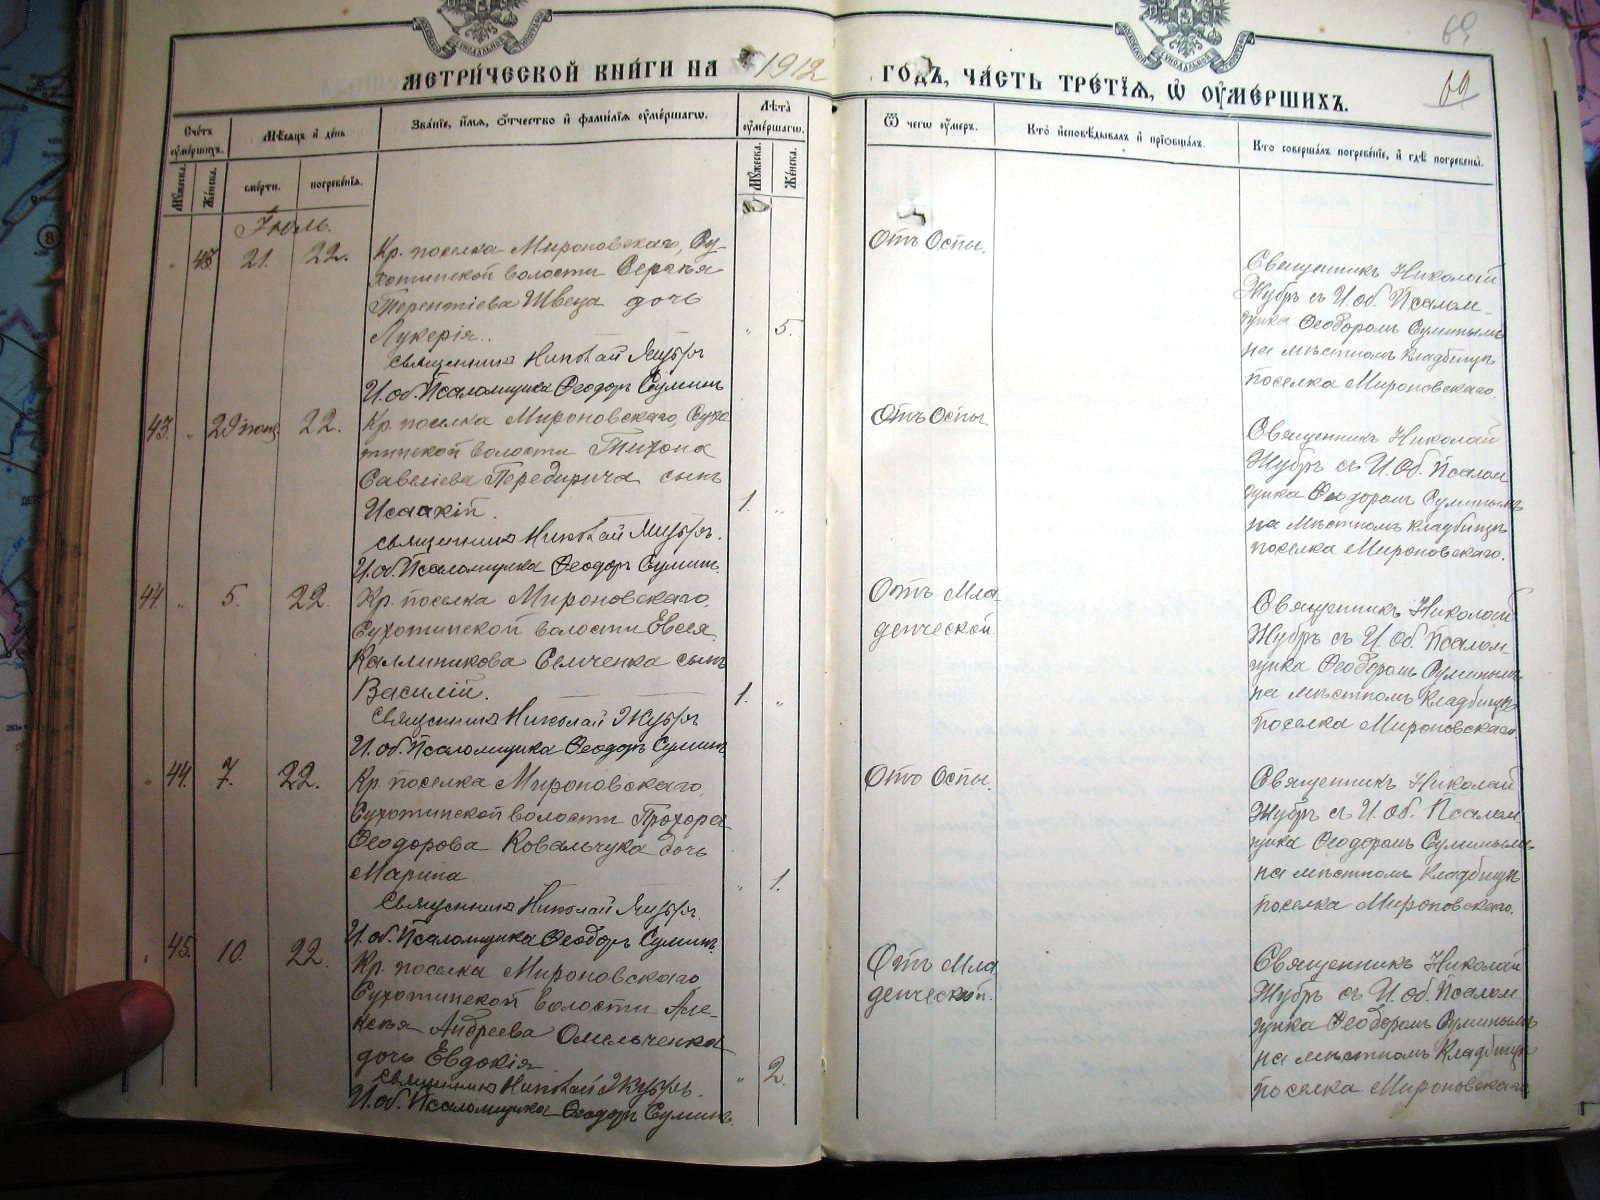 69
МЕТРИ́ЧЕСКОЙ КНИ́ГИ НА 1912
ГОДЪ, ЧА́СТЬ ТРЕ́ТІѦ, Ѡ ОУМЕ́РШИХЪ.
69
Счетъ оумершихъ.
Мѣсяцъ и день
Званіе, имя, отчество и фамилія оумершагѡ.
Лѣта оумершагѡ.
Ѿ чегѡ оумеръ.
Кто исповѣдывалъ и пріобщалъ.
Кто совершалъ погребеніе, и гдѣ погребены.
Мужеска.
Женска.
смерти.
погребенія.
Мужеска.
Женска.
Іюль.
" 43. 21. 22.
Кр. поселка Мироновскаго, Су-
хотинской волости Сергѣя
Терентіева Швеца дочь
Лукерія. " 5.
Священникъ Николай Жубръ
И. об. Псаломщика Ѳеодоръ Сулинъ
Отъ Оспы.
Священникъ Николай
Жубръ съ И. об. Псалом-
щика Ѳеодоромъ Сулинымъ
на мѣстномъ кладбищѣ
поселка Мироновскаго.
43. " 22.
Кр. поселка Мироновскаго, Сухо
тинской волости Тихона
Савеліева сынъ
Исаакій. 1. "
Священникъ Николай Жубръ.
И. об. Псаломщика Ѳеодоръ Сулинъ.
Отъ Оспы.
Священникъ Николай
Жубръ съ И. об. Псалом
щика Ѳеодоромъ Сулинымъ
на мѣстномъ кладбищѣ
поселка Мироновскаго.
44. " 5. 22.
Кр. поселка Мироновскаго,
Сухотинской волости Евсея
Каллиникова Семченка сынъ
Василій. 1. "
Священникъ Николай Жубръ
И. об. Псаломщика Ѳеодоръ Сулинъ
Отъ Мла
денческой
Священникъ Николай
Жубръ съ И. об. Псалом
щика Ѳеодоромъ Сулинымъ
на мѣстномъ кладбищѣ
поселка Мироновскаго
" 44. 7. 22.
Кр. поселка Мироновскаго,
Сухотинской волости Прохора
Ѳеодорова Ковальчука дочь
Марина " 1.
Священникъ Николай Жубръ.
И. об. Псаломщика Ѳеодоръ Сулинъ.
Отъ Оспы.
Священникъ Николай
Жубръ съ И. об. Псалом
щика Ѳеодоромъ Сулинымъ
на мѣстномъ кладбищѣ
поселка Мироновскаго.
" 45. 10. 22.
Кр. поселка Мироновскаго
Сухотинской волости Але-
ксѣя Андреева Омельченка
дочь Евдокія " 2.
Священникъ Николай Жубръ.
И. об. Псаломщика Ѳеодоръ Сулинъ.
Отъ Мла
денческой.
Священникъ Николай
Жубръ съ И. об. Псалом
щика Ѳеодоромъ Сулинымъ
на мѣстномъ кладбищѣ
поселка Мироновскаго